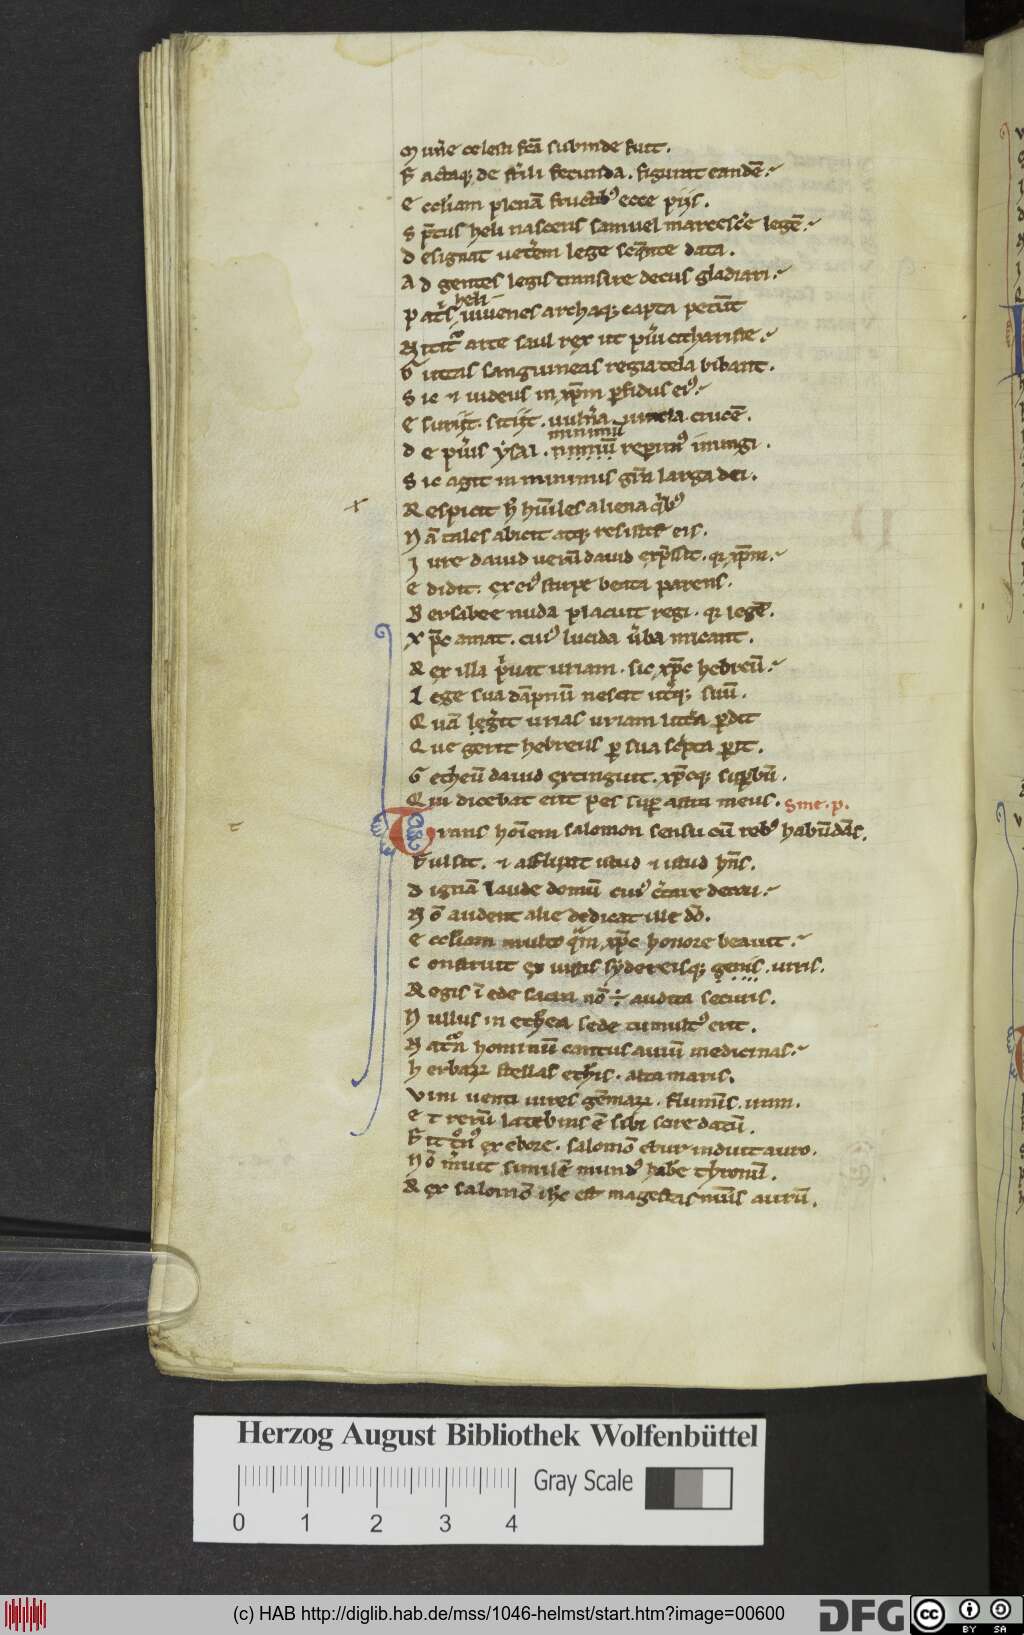 M un̄e celesti fc̄a subinde fuit.
F actaq; de st̓ili fecunda. figurat eandē.
E ccl̓iam plenā fructib᷒ ecce pijs.
S p̄tus heli nascens samuel marcesc̄e legē.
D esignat uet̓em lege seq̄nte data.
A d gentes legis transire decus gladiari.
heli
P at̓s iuuenes archaq; capta petūt
arte saul rex ut
G uttas sanguineas regia tela bibant.
S ic ⁊ iudeus in xp̄m p̱fidus ei᷒.
E suriit. sitiit. uuln̓a uincla crucē.
minimū
D e pu̓is ysai. nimiū rep̱im᷒ inungi.
S ic agit in minimis gr̄a larga dei.
x
R espicit h̄ hūiles aliena
N ā tales abicit atq; resistit eis.
I ure dauid uerū dauid exp̄ssit. q; xp̄m.
E didit. ex ei᷒ stirpe beata parens.
B ersabee nuda placuit regi. q; legē.
X p̄c amat. cui᷒ lucida u̓ba micant.
R ex illa p̓uat uriam. sic xp̄c hebreū.
L ege sua dāpnū nescit ut̓q; suū.
Q uā leg̓it urias uriam litt̓a p̱dit
Q ue gerit hebreus p̱ sua sc̓pta p̱it.
G etheū dauid extinguit. xp̄cq; sup̱bū.
Q ui dicebat erit pes sup̱ astra meus.
T rans hoīem salomon sensu cū reb᷒ habūdās.
F ulsit. ⁊ afflixit istud ⁊ istud hn̄s.
D ignā laude domū cui᷒ c̓tare decori.
N ō audent alie dedicat ille dō.
E ccl̓iam multo q̄m xp̄c honore beauit.
C onstruit ex uiuis sydereisq; genis. uiris.
R egis ī ede sacra nō ÷ audita securis.
N ullus in eth̓ea sede tumult᷒ erit.
N at᷒ā hominū cantus auiū medicinas.
H erbaꝝ stellas eth̓is. alta maris.
V im uenti uires gēmaꝝ. flumīs. iram.
E t rerū latebras ē sibi scire datū.
F it ex ebore. salomō induit auro.
N ō m̓uit similē mund᷒ habe thronū.
R ex salomō ih̄c est magestas aurū.
Herzog August Bibliothek Wolfenbüttel
Gray Scale
0 1 2 3 4
(c) HAB http://diglib.hab.de/mss/1046-helmst/start.htm?image=00600
DFG
cc BY SA